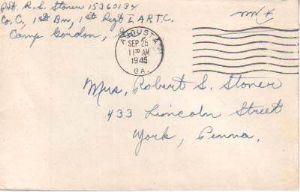 Pvt. R. S. Stoner 15360134
Co. C, 1st Bn, 1st Regt I.A.R.T.C.
Camp Gordon,
AUGUSTA
SEP 25
11 AM
1945
GA.
Mrs. Robert S. Stoner
433 Lincoln Street
York, Penna.